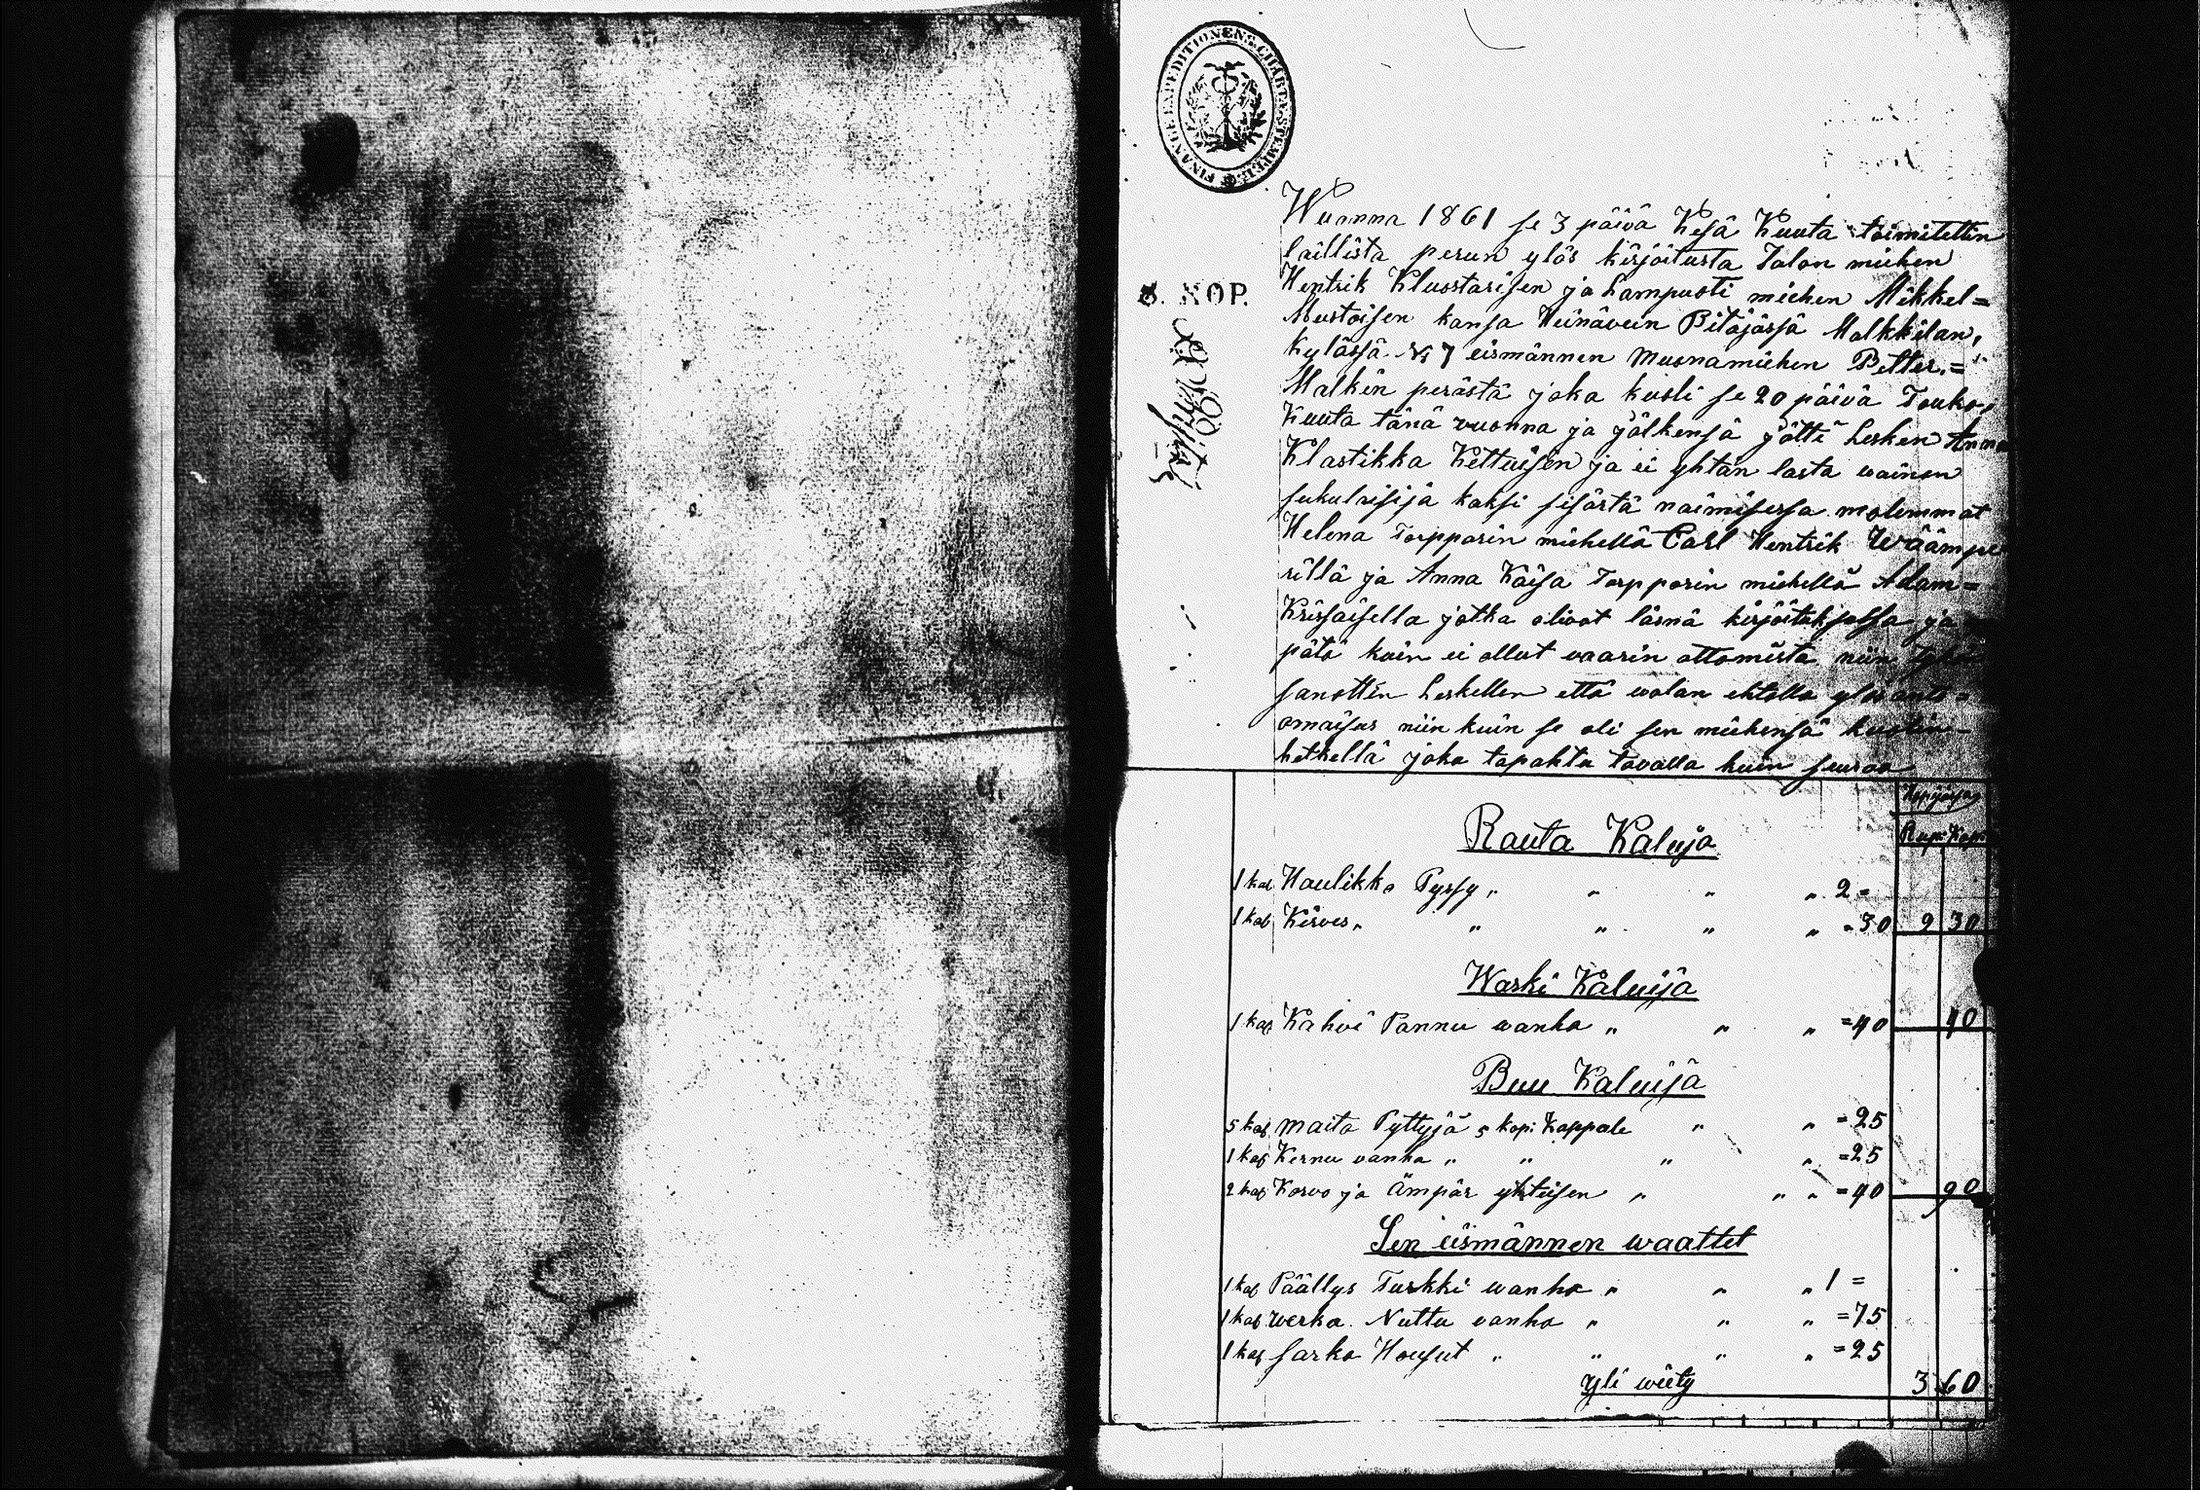 FINANCE EXPEDITIONENS CHARTÆ STEMPEL
Wuonna 1861 se 3 päivä Kesä Kuuta toimitettin
laillista perun ylös kirjoitusta Talon miehen
3. KOP.
Hentrik Kluustarisen ja Lampuoti miehen Mikkel=
Mustoisen kansa Heinävein Pitäjässä Malkkilan,
kylässä № 7 eismännen Muonamiehen Petter.=
Malkin perästä joka kuoli se 20 päivä Touko,
Kuuta tänä vuonna ja jälkensä jätti Lesken Anna
Klastikka Kettuisen ja ei yhtän lasta wainen
sukulaisija kaksi sisärtä naimisessa molemmat
Helena Torpparin miehellä Carl Hentrik Wäämpe
rillä ja Anna Kaisa Torpparin miehellä Adam=
Krissaisella jotka olivat läsnä kirjoituksessa ja
pätö kuin ei ollut vaarin ottomista niin
sanottin Leskellen että walan ehtolla ylös anto=
omaisus niin kuin se oli sen miehensä kuolin-
hetkellä joka tapahtu tavalla kuin seuraa
Rup: Kop:
Rauta Kaluja
1 kap Haulikko Pyssy „ „ „ „ 2 =
1 kap Kirves „ „ „ „ „ = 30 2 30
Waski Kaluija
1 kap Kahvi Pannu wanha „ „ „ = 40 40
Puu Kaluija
5 kap Maito Pyttyjä 5 kopi Kappale „ „ = 25
1 kap Kernu vanha „ „ „ „ = 25
2 kap Korvo ja Ämpär yhteisen „ „ „ = 40 90
Sen eismännen waattet
1 kap Päällys Turkki wanha „ „ „ 1 =
1 kap werka Nuttu vanha „ „ „ = 75
1 kap sarka Housut „ „ „ „ = 25
yli wiety 3 60